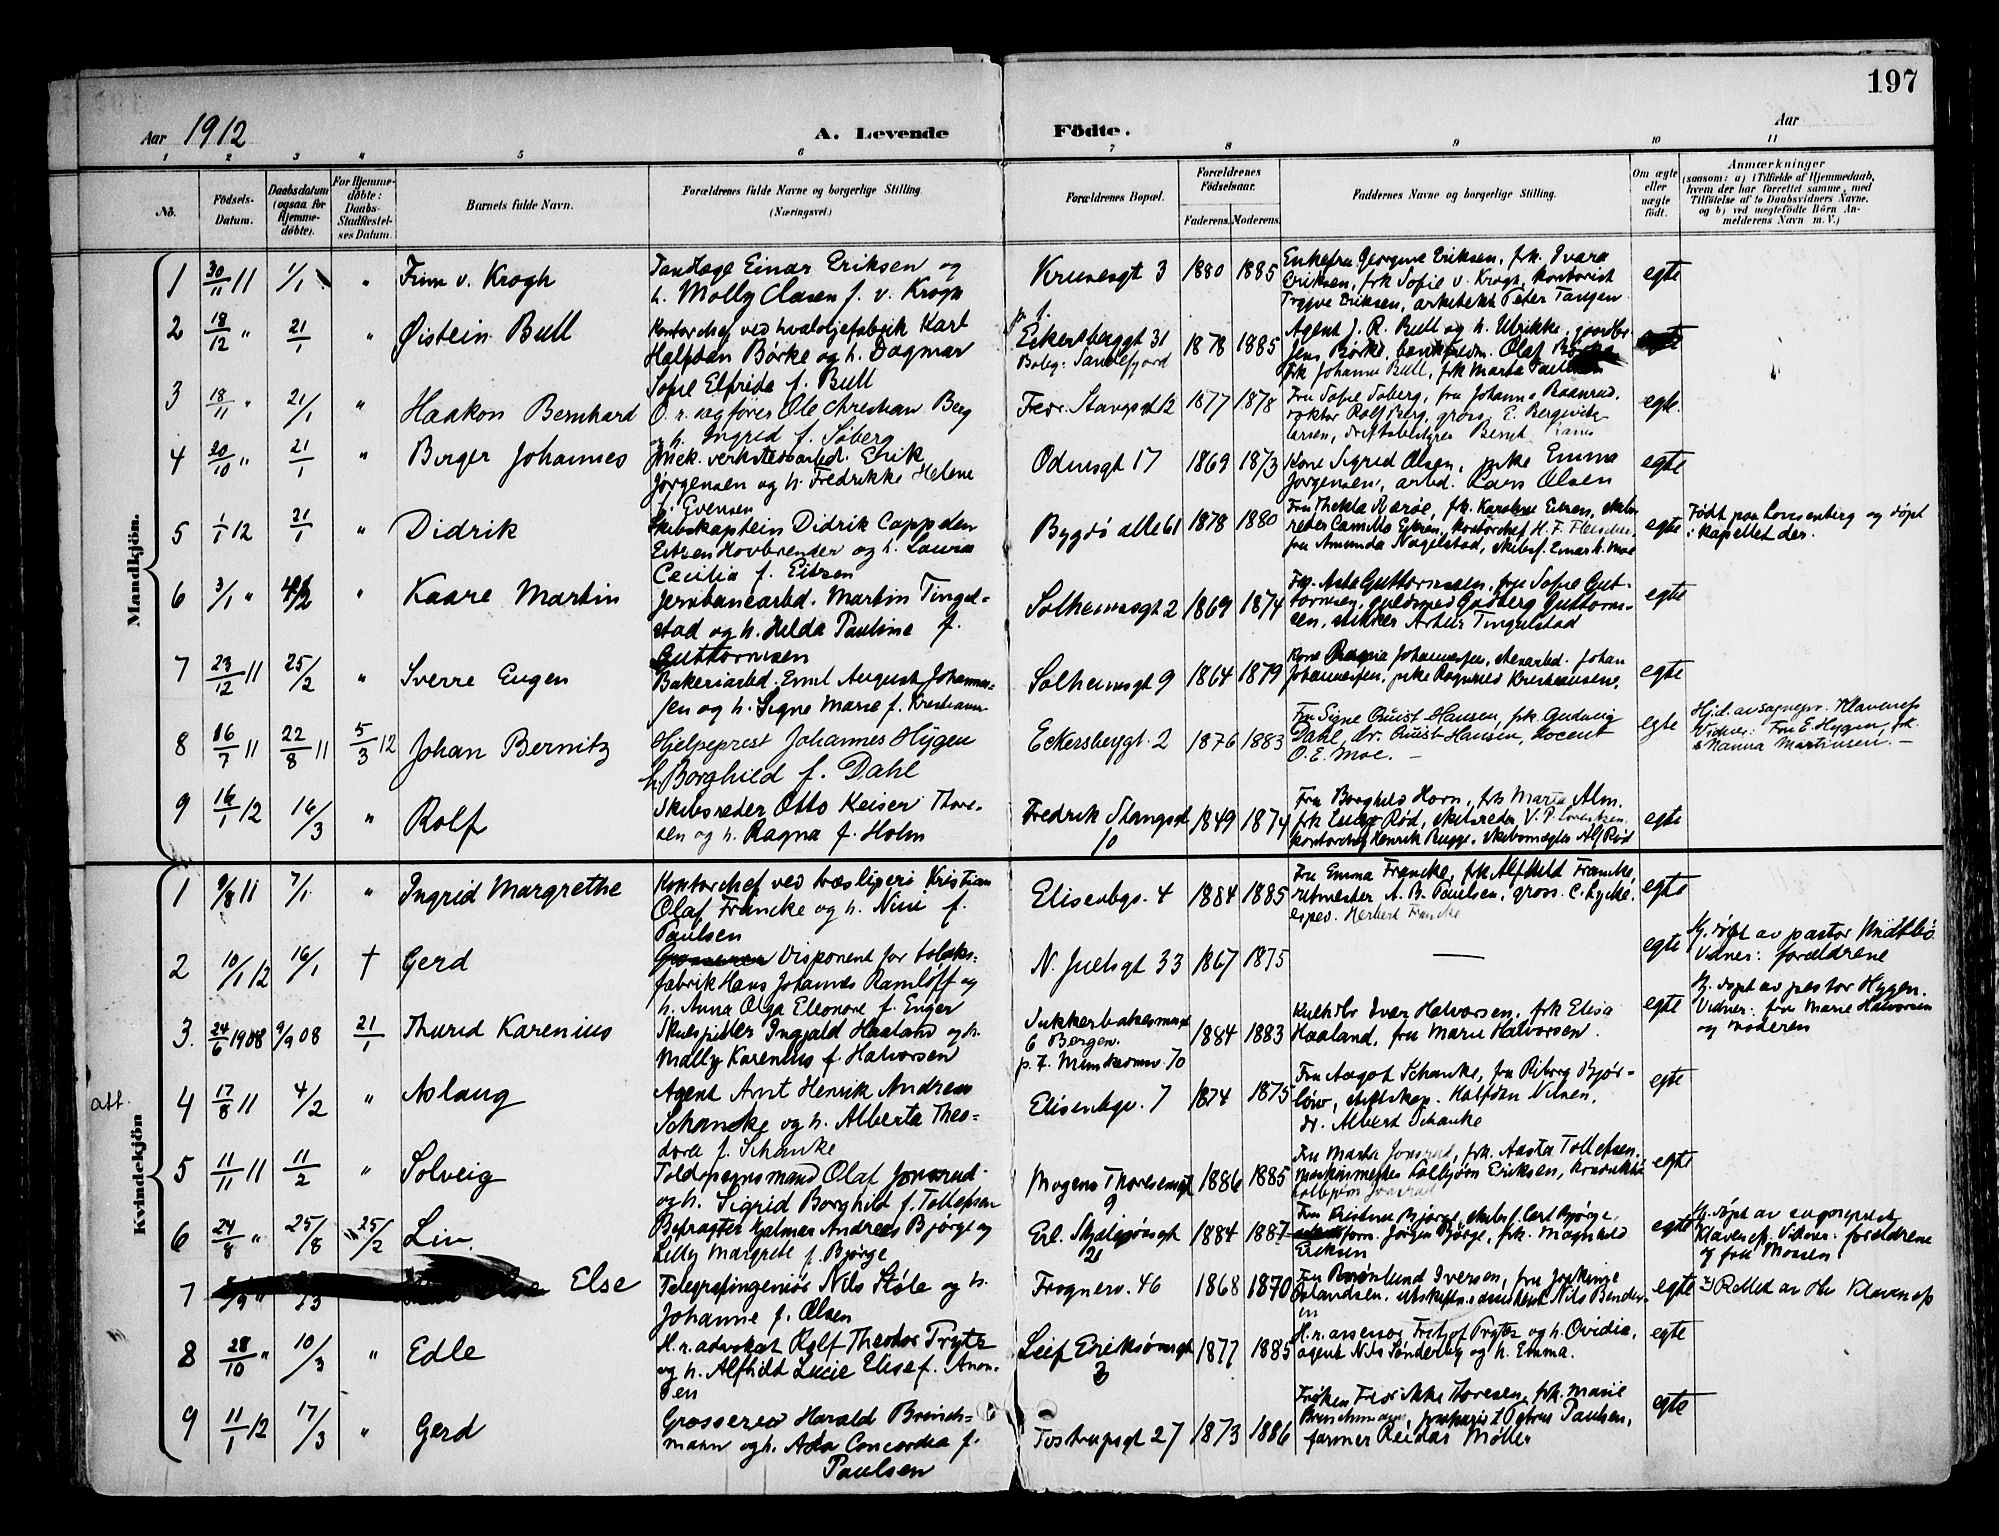 197
Aar 1912
A. Levende Födte.
Aar
1 2 3 4 5 6 7 8 9 10 11
No.
Födsels-Datum.
Daabsdatum (ogsaa for Hjemme-döbte).
For Hjemme-döbte: Daabs-Stadfæstel-ses Datum.
Barnets fulde Navn.
Forældrenes fulde Navne og borgerlige Stilling. (Næringsvei.)
Forældrenes Bopæl.
Forældrenes Födselsaar.
Faderens. Moderens.
Faddernes Navne og borgerlige Stilling.
Om ægte eller uægte födt.
Anmærkninger (saasom: a) i Tilfælde af Hjemmedaab, hvem der har forrettet samme, med Tilföielse af to Daabsvidners Navne, og b) ved uegtefödte Börn An-melderens Navn m. V.)
Mandkjön.
1 30/11 11 1/1 " Finn v. Krogh
Tandlæge Einar Eriksen og
h. Molly Clasen f. v. Krogh
Krusesgt 3 1880 1885
Enkefru Georgine Eriksen, frk. Ivara
Eriksen, frk Sofie v. Krogh, kontorist
Trygve Eriksen, arkitekt Peter Tangen
egte
2 18/12 " 21/1 " Øistein Bull
Kontorchef ved hvaloljefabrik Karl
Halfdan Børke og h. Dagmar
Sofie Elfrida f. Bull
Eckersberggt 31
Bolig: Sandefjord
1878 1885
Agent J. R. Bull og h. Ulrikke, gaardbr
Jens Børke, bankfuldm. Olaf Børke
frk Johanne Bull, frk Marta
egte
3 18/11 " 21/1 " Haakon Bernhard
O. r. sagfører Ole Christian Berg
og h. Ingrid f. Soberg
Fredr. Stangsgt 12 1877 1878
Fru Sofie Soberg, fru Johanne Raanrud,
doktor Rolf Berg, gross. E. Bergwitz
Larsen, driftsbestyrer Bernt
egte.
4 30/10 " 21/1 " Birger Johannes
Mek. verkstedsarbd. Erik
Jørgensen og h. Fredrikke Helene
f. Evensen
Odinsgt 17 1869 1873
Kone Sigrid Olsen, pike Emma
Jørgensen, arbd. Lars Olsen
egte
5 1/1 12 21/1 " Didrik
Skibskaptein Didrik Cappelen
Eitzen Hovbrender og h. Laura
Cecilia f. Eitzen
Bygdö alle 61 1878 1880
Fru Thekla Marøe, frk. Karoline Eitzen, skibs-
reder Camillo Eitzen, kontorchef H. F.
fru Amunda Nagelstad, skibsf. Einar h. Moe
egte
Født paa Lovisenberg og døpt
i kapellet der.
6 3/1 " 4/2 " Kaare Martin
Jernbanearbd. Martin Tingel-
stad og h. Helda Pauline f.
Guttormsen
Solheimsgt 2 1869 1874
Frk. Asta Guttormsen, fru Sofie Gut-
tormsen, guldsmed Gudberg Guttorm-
sen, snekker Artur Tingelstad
egte
7 23/12 11 25/2 " Sverre Eugen
Bakeriarbd. Emil August Johannes-
sen og h. Signe Marie f. Kristiansen
Solheimsgt 9 1864 1879
Kone Ragna Johannessen, stenarbd. Johan
Johannessen, pike Ragnhild Kristiansen.
egte
8 16/7 11 22/8 11 5/3 12 Johan Bernitz
Hjelpeprest Johannes Hygen
h. Borghild f. Dahl
Eckersbergt. 2 1876 1883
Fru Signe Quist Hansen, frk. Gudveig
Dahl, dr. Quist-Hansen, docent
O. E. Moe. -
egte
Hjd. av sognepr. Klaveness
Vidner: Fru E. Hygen, frk.
Nanna Martinsen. -
9 16/1 12 16/3 " Rolf
Skibsreder Otto Keiser Thore-
sen og h. Ragna f. Holm
Fredrik Stangsgt
10
1849 1874
Fru Borghild Horn, frk Marta Alm,
frk Rød, skibsreder V. P.
kontorchef Henrik Bugge, skibsmægler Alf Rød
egte
Kvindekjön
1 9/8 11 7/1 " Ingrid Margrethe
Kontorchef ved træsliperi Kristian
Olaf Francke og h. Nini f.
Paulsen
Elisenbgv. 4 1884 1885
Fru Emma Francke, frk Alfhild Francke,
ritmester A. B. Paulsen, gross. C. Lycke,
exped. Herbert Francke
egte
2 10/1 12 16/1 † Gerd
Disponent for tobaks-
fabrik Hans Johannes Ramlöff og
h. Anna Olga Eleonore f. Enger
N. Juelsgt 33 1867 1875
—
egte
Hj. døpt av pastor
Vidner: forældrene
3. 24/6 1908 9/9 08 21/1 Thurid Karenius
Skuespiller Ingjald Haaland og h.
Mally Karenius f. Halvorsen
6 Bergen.
p. t. Munkedamsv. 70
1884 1883
Ivar Halvorsen, frk Elisa
Haaland, fru Marie Halvorsen.
egte
Hj. døpt av pastor Hygen.
Vidner: fru Marie Halvorsen
og moderen
att.
4 17/8 11 4/2 " Aslaug
Agent Arnt Henrik Andreas
Schancke og h. Alberta Theo-
dora f. Schancke
Elisenbgv. 7 1874 1875
Fru Aagot Schancke, fru Riborg Bjør-
low, skibskap. Halfdan Nilsen,
dr. Albert Schancke
egte
5 11/11 11 11/2 " Solveig
Toldopsynsmand Olaf Jonsrud
og h. Sigrid Borghild f. Tollefsen
Mogens Thorsensgt
9
1886 1885
Fru Marta Jonsrud, frk. Aasta Tollefsen,
maskinmester Kolbjørn Eriksen, konduktør
Kolbjørn Jonsrud
egte
6 24/8 " 25/8 " 25/2 Liv.
Befragter Hjalmar Andreas Bjørge og
Lilly Margrete f. Bjørge
Erl. Skjalgsönsgt
21
1884 1887
Fru Kristine Bjørge, skibsf. Carl Bjørge,
Jørgen Bjørge, frk. Magnhild
Eriksen
egte
Hj. døpt av sogneprest
Klaveness. Vidner: forældrene
og fru Mossen.
7 Else
Telegrafingeniör Nils Støle og h.
Johanne f. Olsen
Frognerv. 46 1868 1870
Fru Brønlund Iversen, fru Jokinge
Erlandsen, Nils Bender-
en
egte
x) Rettet av Chr Klaveness
8 28/10 " 10/3 " Edle
H. r. advokat Rolf Theodor Frytz
og h. Alfhild Lucie Elise f. Anon-
sen
Leif Eriksönsgt
3
1877 1885
H. r. assessor Fritjof Frytz og h. Ovidia,
agent Nils Sönderby og h. Emma.
egte
9 11/1 12 17/3 " Gerd
Grosserer Harald Brinch-
mann og h. Ada Concordia f.
Paulsen
Tostrupsgt 27 1873 1886
Frøken Fredrikke Thoresen, frk. Marie
Brinchmann, Paulsen,
farmer Reidar Møller
egte